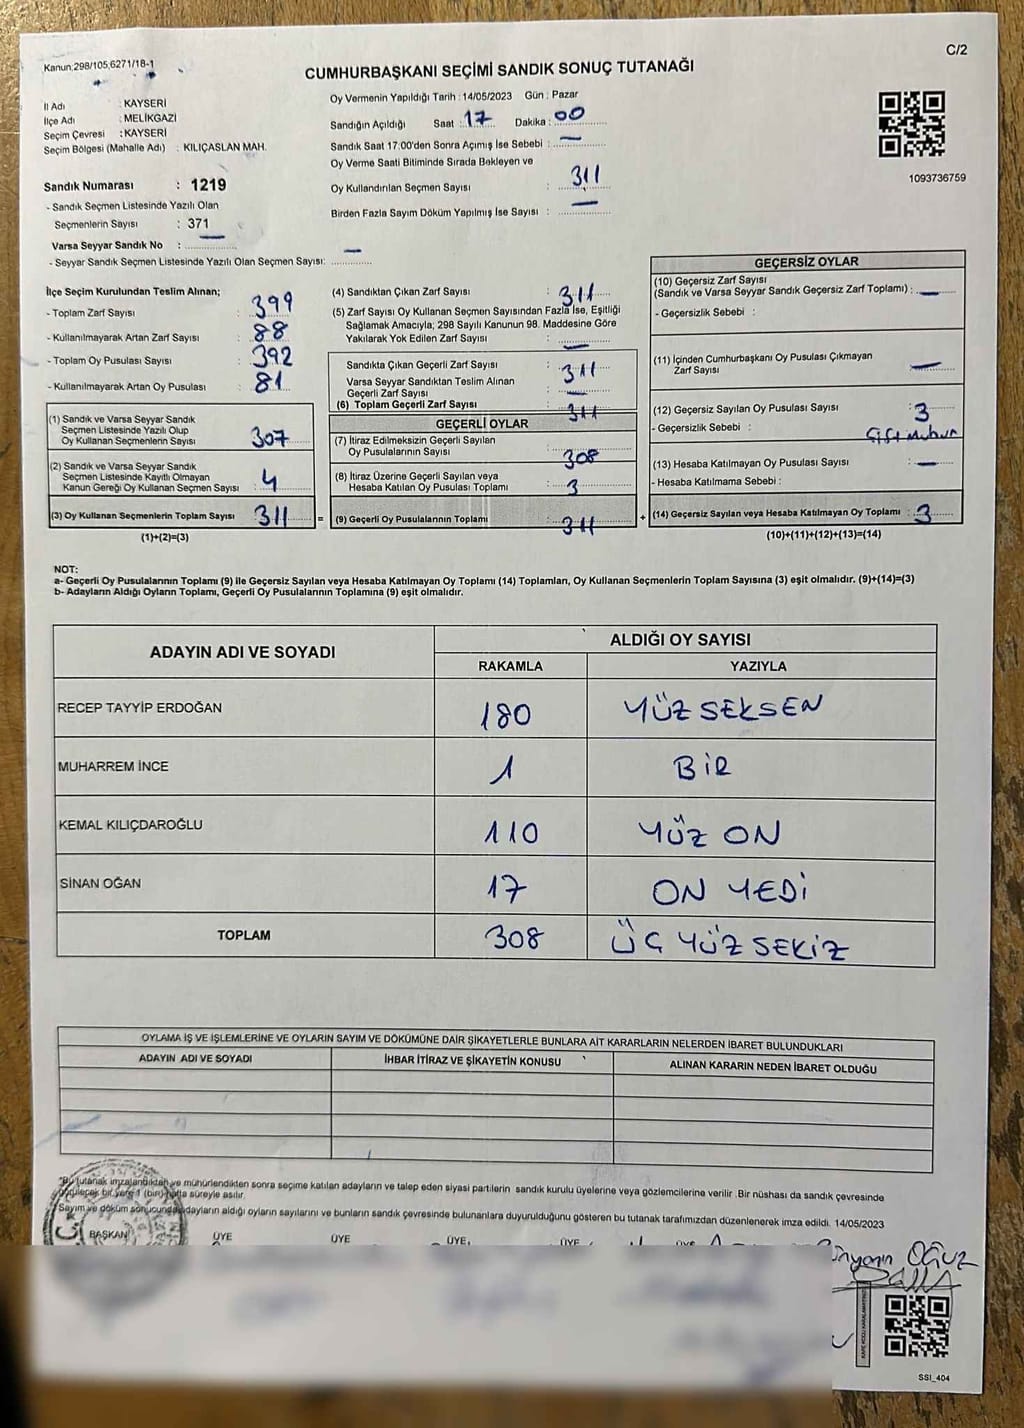 Kanun;298/105,6271/18-1
C/2
CUMHURBAŞKANI SEÇİMİ SANDIK SONUÇ TUTANAĞI
İl Adı : KAYSERİ
İlçe Adı : MELİKGAZİ
Seçim Çevresi : KAYSERİ
Seçim Bölgesi (Mahalle Adı) : KILIÇASLAN MAH.
Sandık Numarası : 1219
- Sandık Seçmen Listesinde Yazılı Olan
Seçmenlerin Sayısı : 371
Varsa Seyyar Sandık No : —
- Seyyar Sandık Seçmen Listesinde Yazılı Olan Seçmen Sayısı: —
Oy Vermenin Yapıldığı Tarih : 14/05/2023 Gün : Pazar
Sandığın Açıldığı Saat : 17 Dakika : 00
Sandık Saat 17:00'den Sonra Açımış İse Sebebi : —
Oy Verme Saati Bitiminde Sırada Bekleyen ve
Oy Kullandırılan Seçmen Sayısı : 311
Birden Fazla Sayım Döküm Yapılmış İse Sayısı : —
1093736759
İlçe Seçim Kurulundan Teslim Alınan;
- Toplam Zarf Sayısı : 399
- Kullanılmayarak Artan Zarf Sayısı : 88
- Toplam Oy Pusulası Sayısı : 392
- Kullanılmayarak Artan Oy Pusulası : 81
(1) Sandık ve Varsa Seyyar Sandık
Seçmen Listesinde Yazılı Olup
Oy Kullanan Seçmenlerin Sayısı : 307
(2) Sandık ve Varsa Seyyar Sandık
Seçmen Listesinde Kayıtlı Olmayan
Kanun Gereği Oy Kullanan Seçmen Sayısı : 4
(3) Oy Kullanan Seçmenlerin Toplam Sayısı : 311 =
(1)+(2)=(3)
(4) Sandıktan Çıkan Zarf Sayısı : 311
(5) Zarf Sayısı Oy Kullanan Seçmen Sayısından Fazla İse, Eşitliği
Sağlamak Amacıyla; 298 Sayılı Kanunun 98. Maddesine Göre
Yakılarak Yok Edilen Zarf Sayısı : —
Sandıkta Çıkan Geçerli Zarf Sayısı : 311
Varsa Seyyar Sandıktan Teslim Alınan
Geçerli Zarf Sayısı : —
(6) Toplam Geçerli Zarf Sayısı : 311
GEÇERLİ OYLAR
(7) İtiraz Edilmeksizin Geçerli Sayılan
Oy Pusulalarının Sayısı : 308
(8) İtiraz Üzerine Geçerli Sayılan veya
Hesaba Katılan Oy Pusulası Toplamı : 3
(9) Geçerli Oy Pusulalarının Toplamı : 311 +
GEÇERSİZ OYLAR
(10) Geçersiz Zarf Sayısı
(Sandık ve Varsa Seyyar Sandık Geçersiz Zarf Toplamı) : —
- Geçersizlik Sebebi :
(11) İçinden Cumhurbaşkanı Oy Pusulası Çıkmayan
Zarf Sayısı : —
(12) Geçersiz Sayılan Oy Pusulası Sayısı : 3
- Geçersizlik Sebebi :
(13) Hesaba Katılmayan Oy Pusulası Sayısı : —
- Hesaba Katılmama Sebebi :
(14) Geçersiz Sayılan veya Hesaba Katılmayan Oy Toplamı : 3
(10)+(11)+(12)+(13)=(14)
NOT:
a- Geçerli Oy Pusulalarının Toplamı (9) ile Geçersiz Sayılan veya Hesaba Katılmayan Oy Toplamı (14) Toplamları, Oy Kullanan Seçmenlerin Toplam Sayısına (3) eşit olmalıdır. (9)+(14)=(3)
b- Adayların Aldığı Oyların Toplamı, Geçerli Oy Pusulalarının Toplamına (9) eşit olmalıdır.
ADAYIN ADI VE SOYADI
ALDIĞI OY SAYISI
RAKAMLA YAZIYLA
RECEP TAYYİP ERDOĞAN 180 YÜZ SEKSEN
MUHARREM İNCE 1 BİR
KEMAL KILIÇDAROĞLU 110 YÜZ ON
SİNAN OĞAN 17 ON YEDİ
TOPLAM 308 ÜÇ YÜZ SEKİZ
OYLAMA İŞ VE İŞLEMLERİNE VE OYLARIN SAYIM VE DÖKÜMÜNE DAİR ŞİKAYETLERLE BUNLARA AİT KARARLARIN NELERDEN İBARET BULUNDUKLARI
ADAYIN ADI VE SOYADI İHBAR İTİRAZ VE ŞİKAYETİN KONUSU ALINAN KARARIN NEDEN İBARET OLDUĞU
*Bu tutanak imzalandıktan ve mühürlendikten sonra seçime katılan adayların ve talep eden siyasi partilerin sandık kurulu üyelerine veya gözlemcilerine verilir .Bir nüshası da sandık çevresinde
bir yere 1 (bir) hafta süreyle asılır.
Sayım ve döküm sonucunda adayların aldığı oyların sayılarını ve bunların sandık çevresinde bulunanlara duyurulduğunu gösteren bu tutanak tarafımızdan düzenlenerek imza edildi. 14/05/2023
BAŞKAN ÜYE ÜYE ÜYE ÜYE ÜYE
OĞUZ
SSI_404